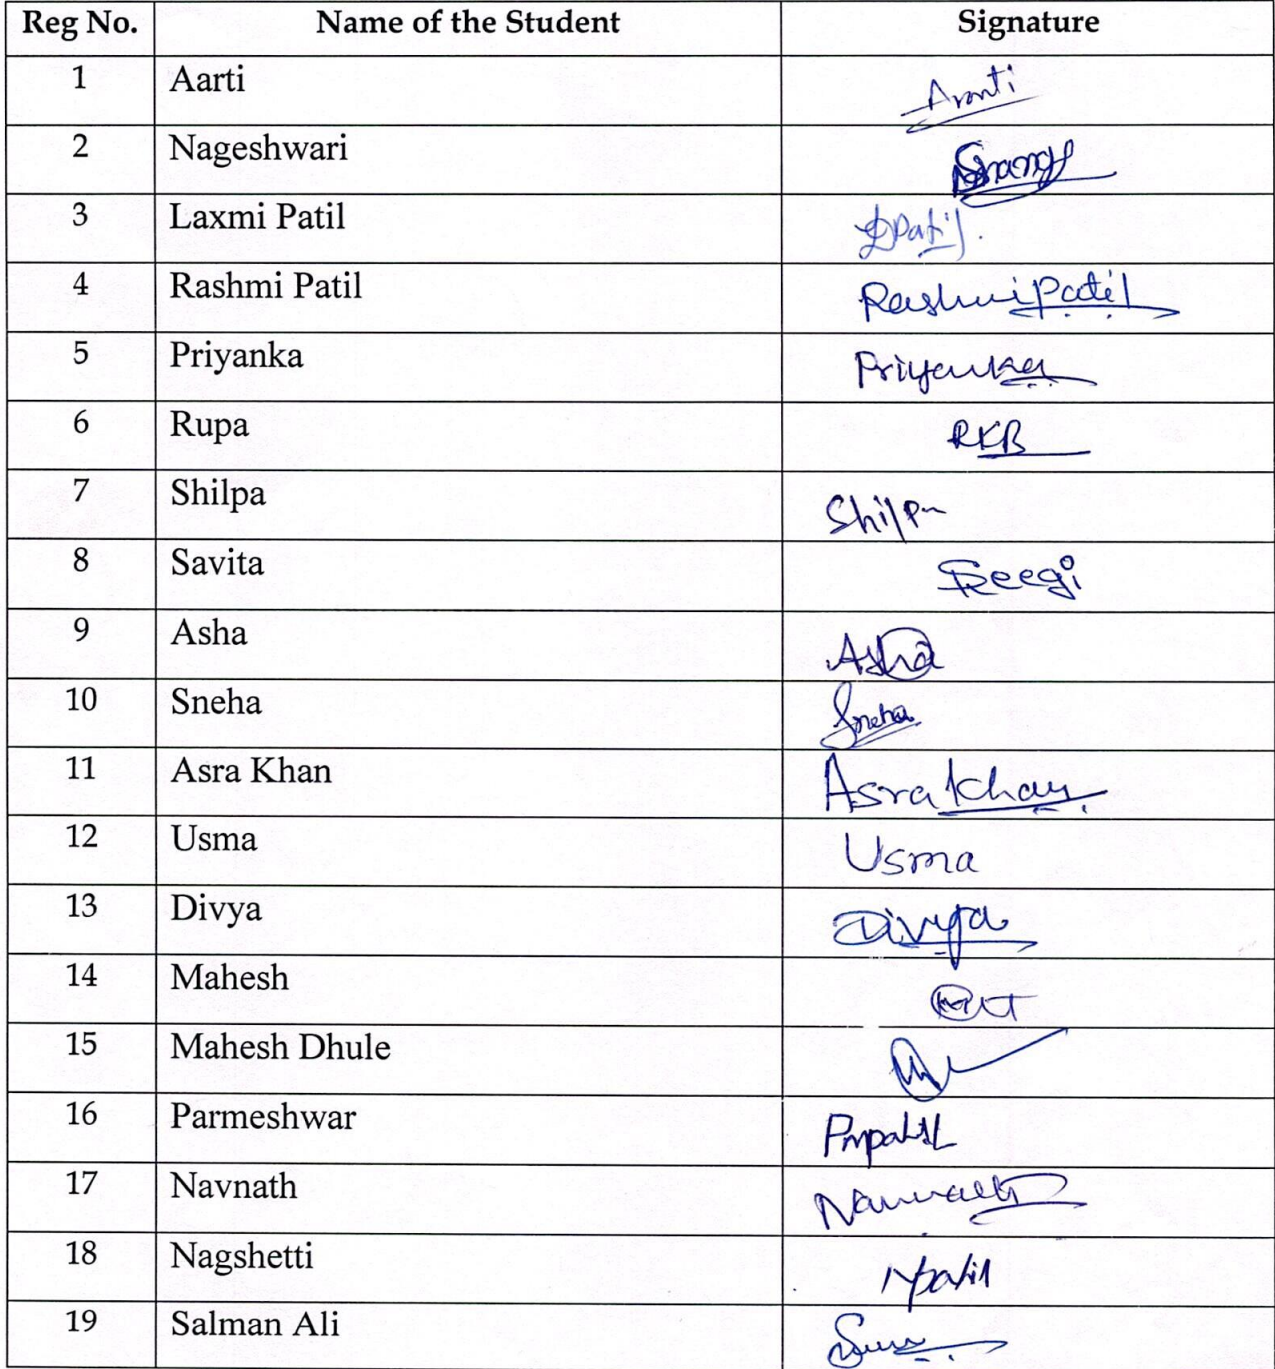 Reg No. Name of the Student Signature
1 Aarti
2 Nageshwari
3 Laxmi Patil Patil.
4 Rashmi Patil Rashmi Patil
5 Priyanka Priyanka
6 Rupa RKB
7 Shilpa Shilpa
8 Savita
9 Asha Asha
10 Sneha Sneha
11 Asra Khan Asra Khan
12 Usma Usma
13 Divya Divya
14 Mahesh
15 Mahesh Dhule
16 Parmeshwar
17 Navnath Navnath
18 Nagshetti NPatil
19 Salman Ali